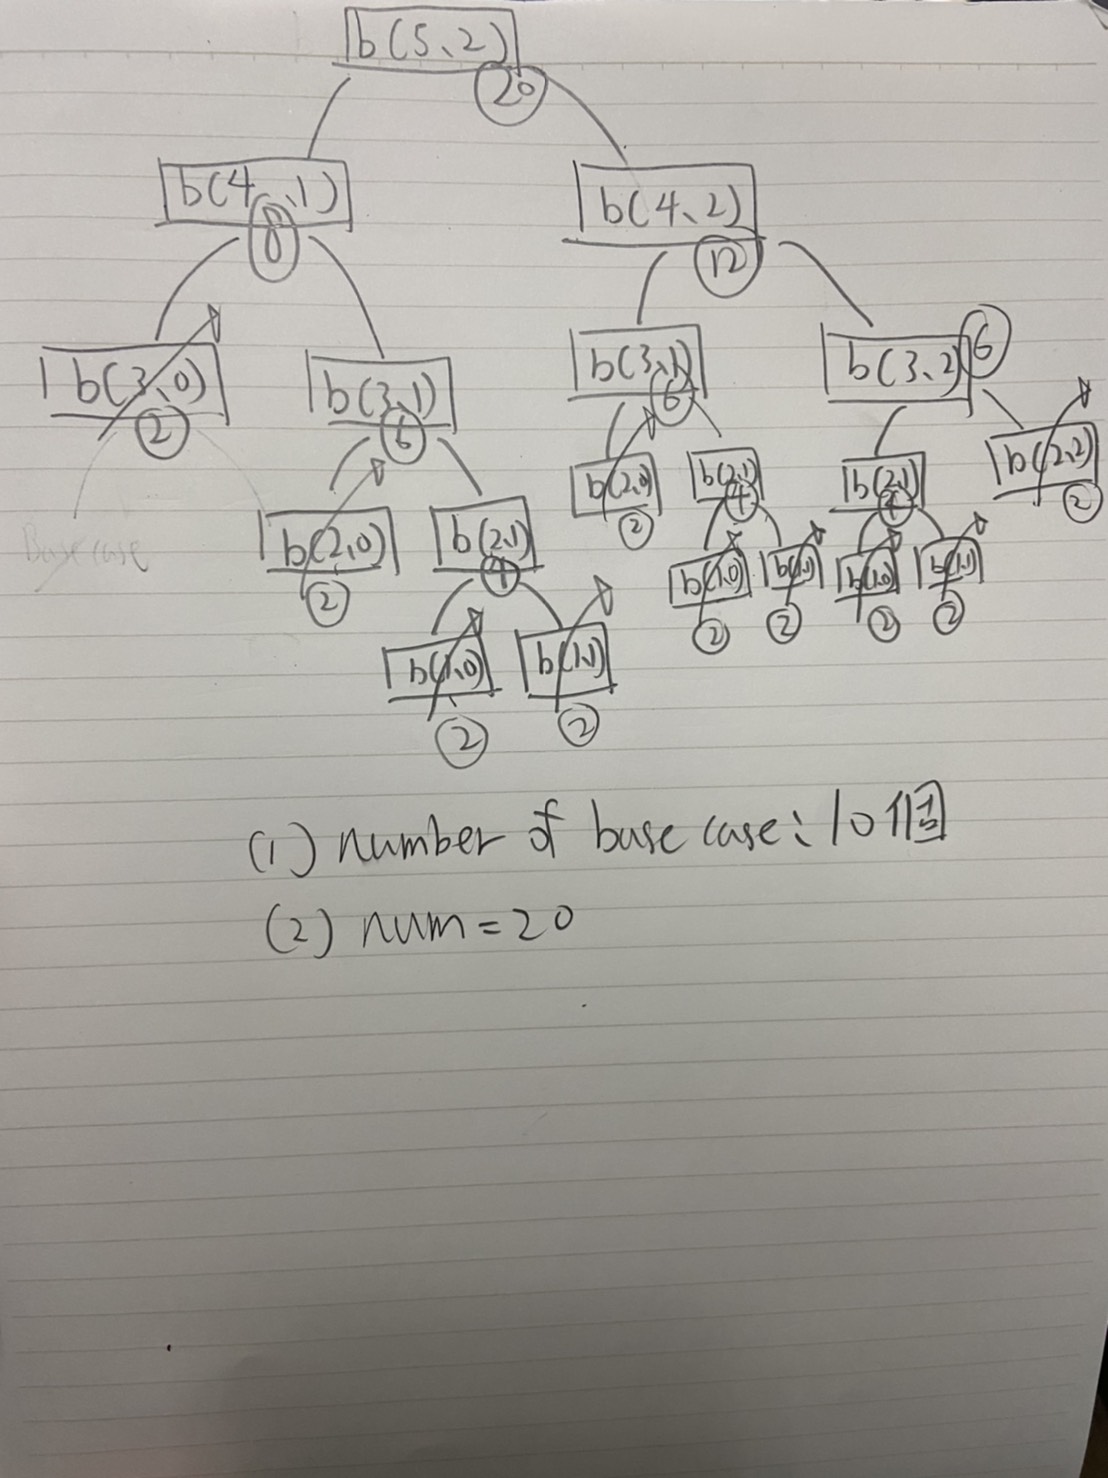 b(5、2)
20
b(4、1)
8
b(4、2)
12
b(3、0)
2
b(3、1)
6
b(3、1)
6
b(3、2)
6
b(2、0)
2
b(2、1)
4
b(2、0)
2
b(2、1)
4
b(2、1)
4
b(2、2)
2
Base case
b(1、0)
2
b(1、1)
2
b(1、0)
2
b(1、1)
2
b(1、0)
2
b(1、1)
2
(1) number of base case: 10個
(2) num = 20